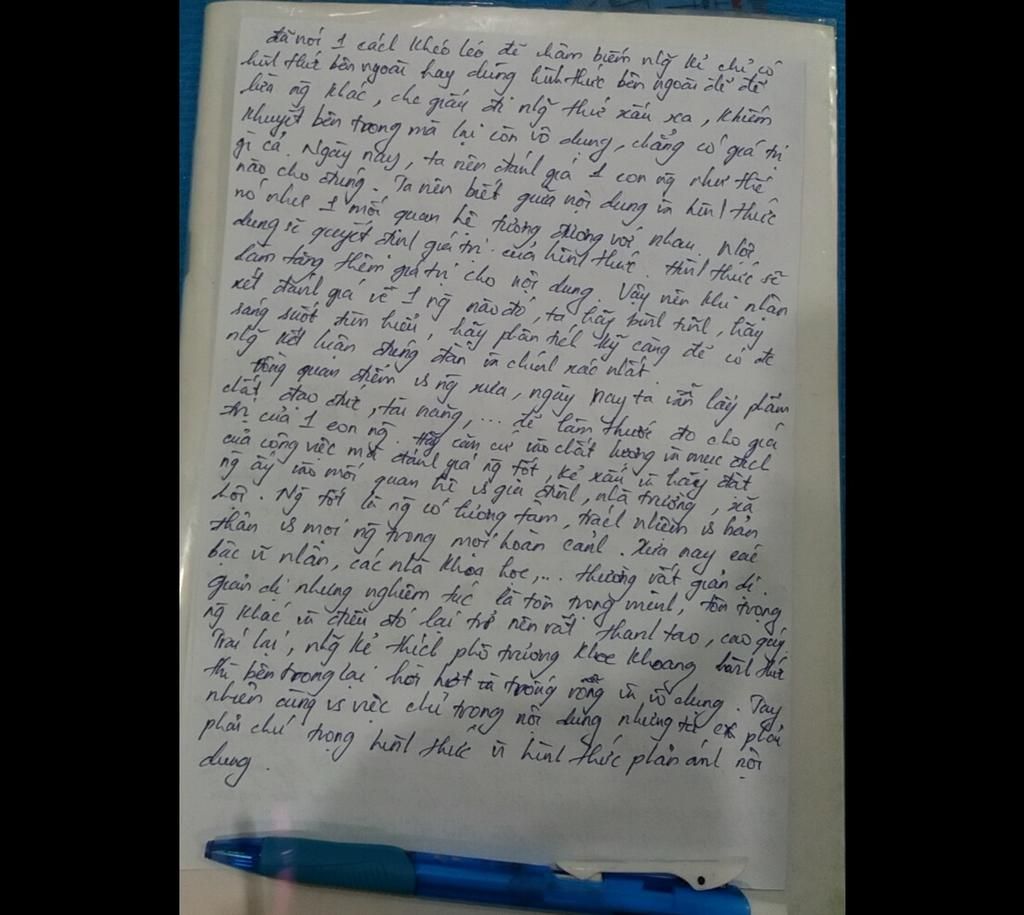 đã nói 1 cách khéo léo để châm biếm nh~g kẻ chỉ có
hình thức bên ngoài hay dùng hình thức bên ngoài để để
lừa ng~ khác, che giấu đi nh~g thứ xấu xa, khiếm
khuyết bên trong mà lại còn vô dụng, chẳng có giá trị
gì cả. Ngày nay, ta nên đánh giá 1 con ng~ như thế
nào cho đúng. Ta nên biết giữa nội dung và hình thức
nó như 1 mối quan hệ tương đương với nhau. Nội
dung sẽ quyết định giá trị của hình thức. Hình thức sẽ
làm tăng thêm giá trị cho nội dung. Vậy nên khi nhận
xét đánh giá về 1 ng~ nào đó, ta hãy bình tĩnh, hãy
sáng suốt tìm hiểu, hãy phân tích kỹ càng để có đc
nh~g kết luận đúng đắn và chính xác nhất.
Đồng quan điểm vs ng~ xưa, ngày nay ta vẫn lấy phẩm
chất đạo đức, tài năng,... để làm thước đo cho giá
trị của 1 con ng~. Hãy căn cứ vào chất lượng và mục đích
của công việc mà đánh giá ng~ tốt, kẻ xấu và hãy đặt
ng~ ấy vào mối quan hệ vs gia đình, nhà trường, xã
hội. Ng~ tốt là ng~ có lương tâm, trách nhiệm vs bản
thân vs mọi ng~ trong mọi hoàn cảnh. Xưa nay các
bậc vĩ nhân, các nhà khoa học,... thường rất giản dị.
Giản dị nhưng nghiêm túc là tôn trọng mình, tôn trọng
ng~ khác và điều đó lại trở nên rất thanh tao, cao quý.
Trái lại, nh~g kẻ thích phô trương khoe khoang hình thức
thì bên trong lại hời hợt và trống rỗng và vô dụng. Tuy
nhiên cùng vs việc chú trọng nội dung nhưng ta phải
phải chú trọng hình thức vì hình thức phản ánh nội
dung.